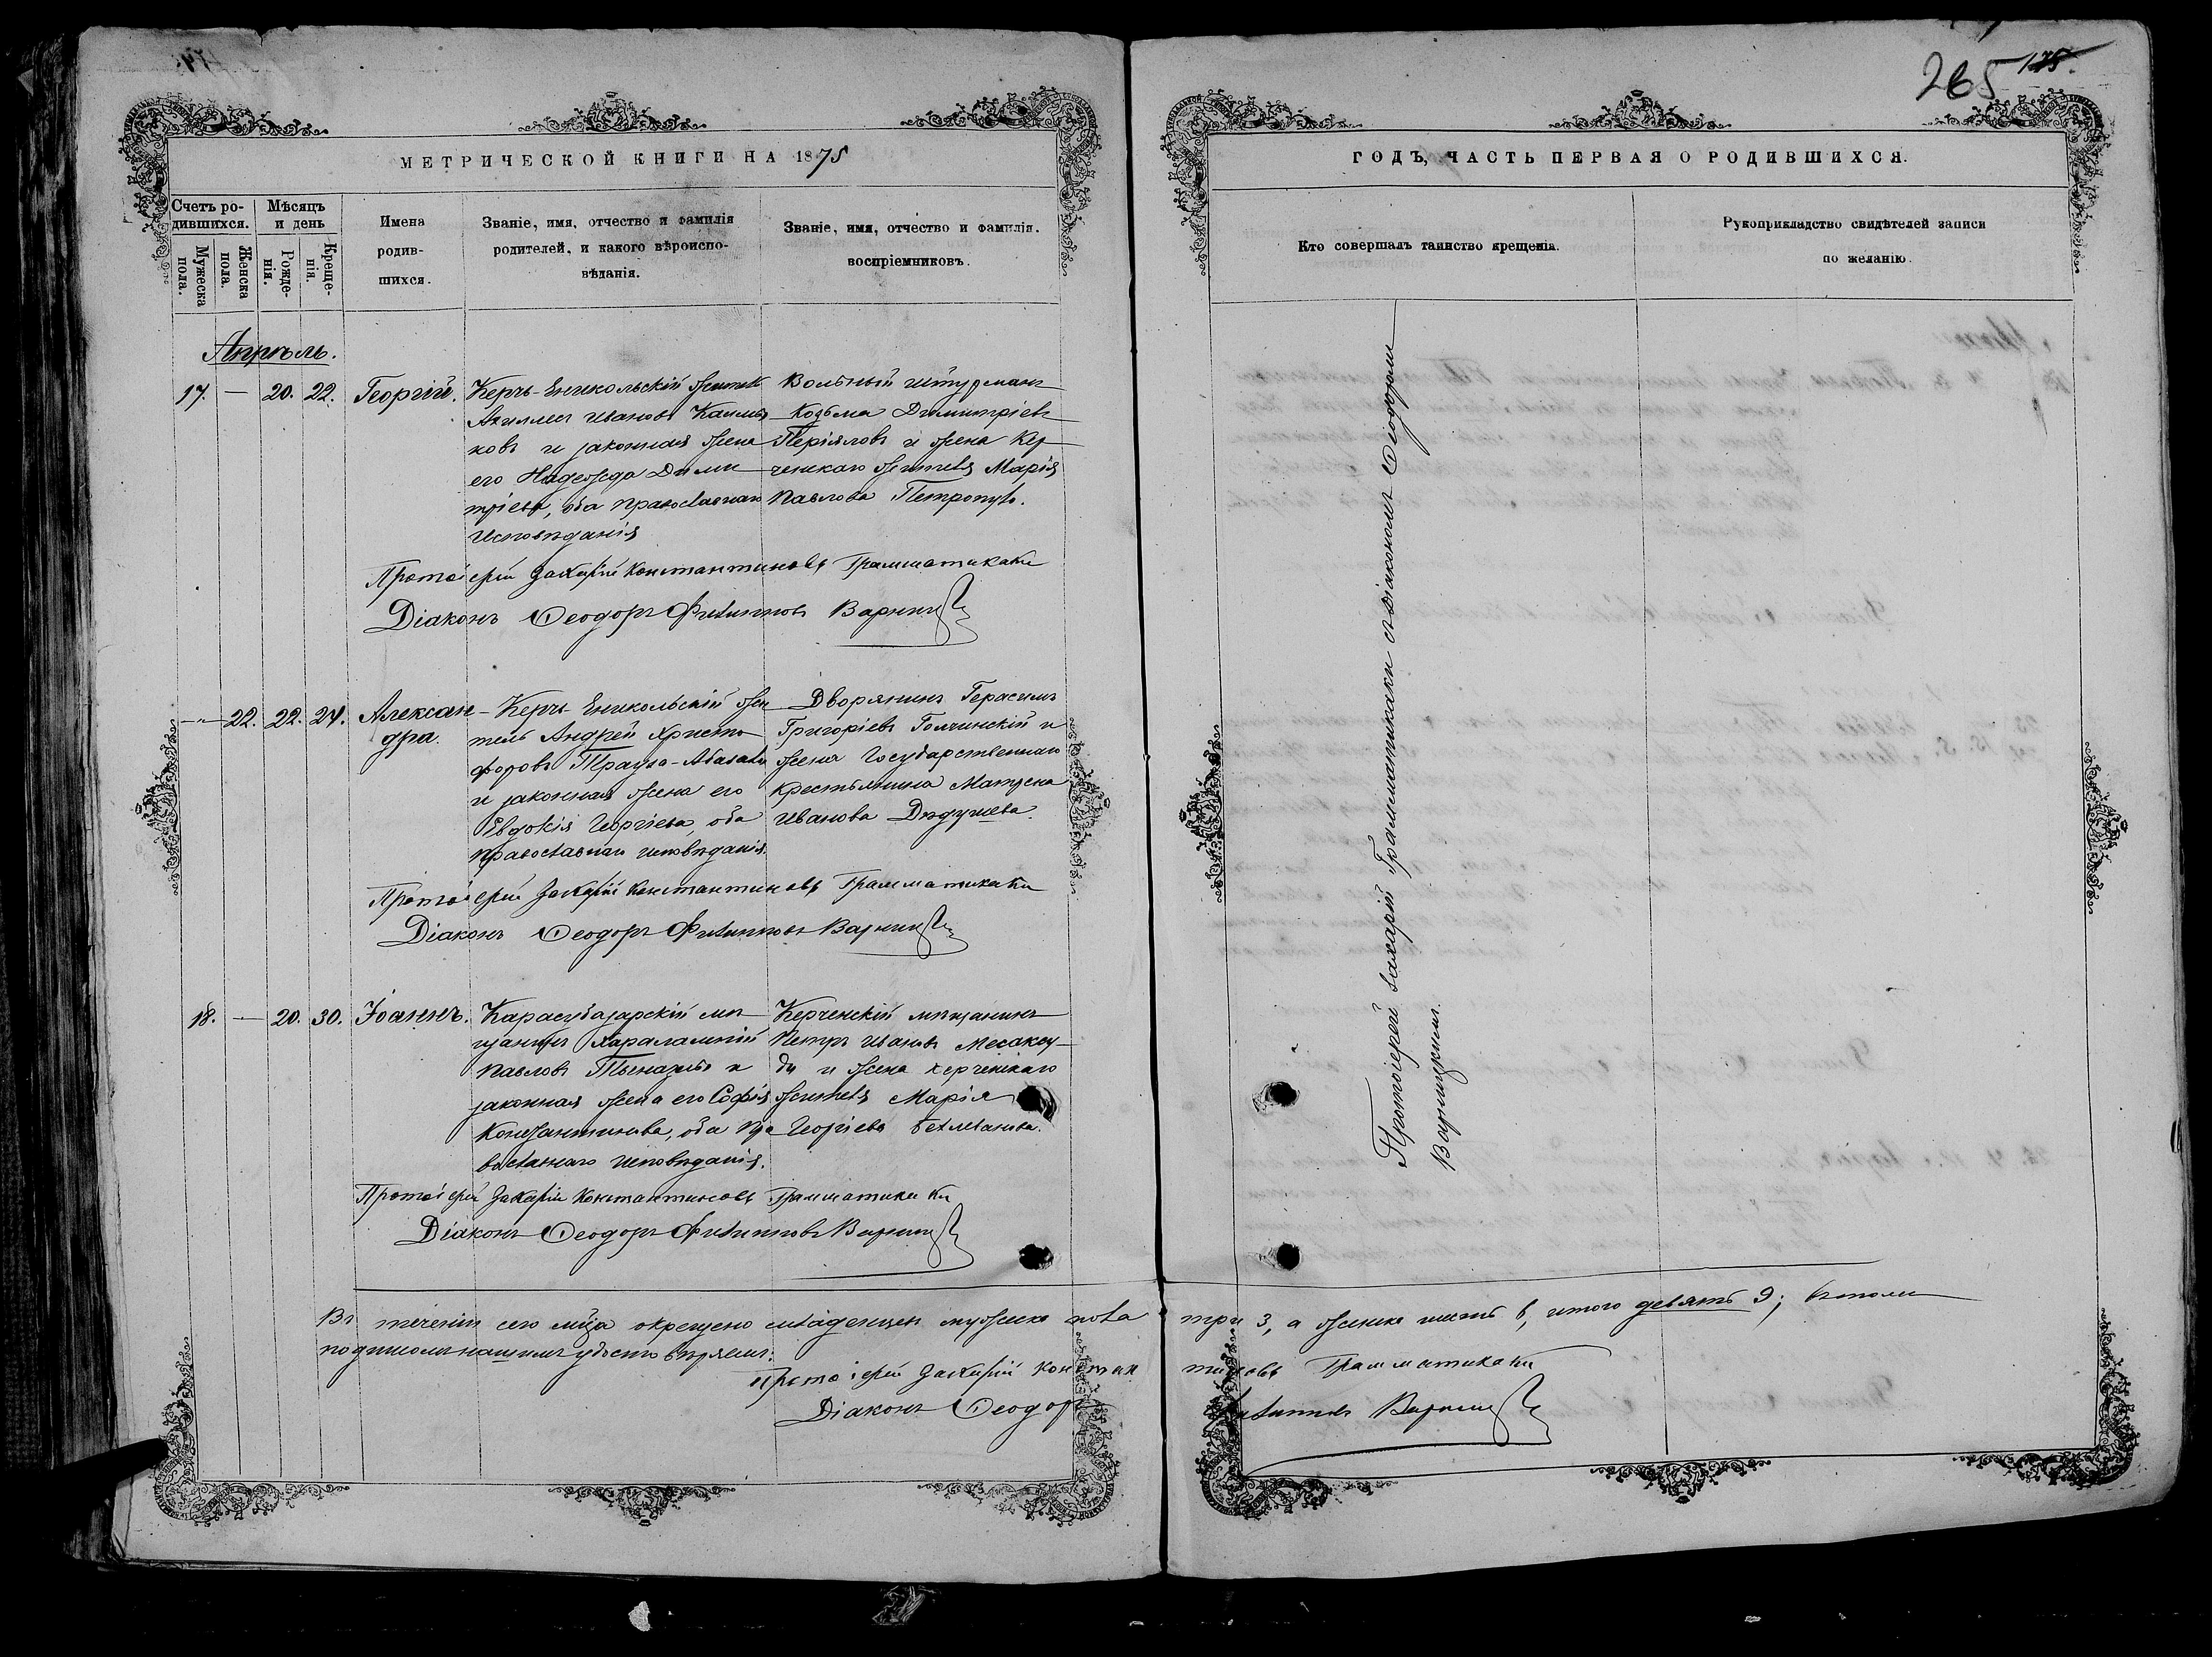 265 175.
МЕТРИЧЕСКОЙ КНИГИ НА 1875
ГОДЪ, ЧАСТЬ ПЕРВАЯ О РОДИВШИХСЯ.
Счетъ ро-
дившихся.
Мужеска
пола.
Женска
пола.
Мѣсяцъ
и день
Рожде-
нія.
Креще-
нія.
Имена
родив-
шихся.
Званіе, имя, отчество и фамилія
родителей, и какого вѣроиспо-
вѣданія.
Званіе, имя, отчество и фамилія.
воспріемниковъ.
Кто совершалъ таинство крещенія.
Рукоприкладство свидѣтелей записи
по желанію.
Апрѣль.
17. — 20. 22. Георгій.
Керчь-Еникольскій
Ахиллей Ивановъ
ковъ и законная жена
его Надежда Дими
тріева, оба православнаго
исповѣданія
Вольный штурманъ
Козьма Димитріевъ
Періяловъ и жена Кер
ченскаго жителя Марія
Павлова
Протоіерей Захарій Константиновъ Грамматикаки
Діаконъ Ѳеодоръ Филипповъ
— 22. 22. 24. Алексан-
дра.
Керчь Еникольскій жи
тель Андрей Христо
форовъ
и законная жена его
Евдокія Георгіева, оба
православнаго исповѣданія.
Дворянинъ Герасимъ
Григоріевъ Голчинскій и
жена Государственнаго
крестьянина Матрена
Иванова
Протоіерей Захарій Константиновъ Грамматикаки
Діаконъ Ѳеодоръ Филипповъ
18. — 20. 30. Іоаннъ.
Карасубазарскій мѣ
щанинъ Харалампій
Павловъ и
законная жена его Софія
Константинова, оба пра
вославнаго исповѣданія.
Керченскій мѣщанинъ
Петръ Ивановъ Месаксу-
ди и жена керченскаго
жителя Марія
Георгіева
Протоіерей Захарій Константиновъ Грамматикаки
Діаконъ Ѳеодоръ Филипповъ
Протоіерей Захарій Грамматикаки съ діакономъ Ѳеодоромъ
Варницкимъ.
Въ теченіи сего мца окрещено младенцевъ мужеска пола три 3, а женска шесть 6, итого девять 9; въ томъ
подписомъ нашимъ удостовѣряемъ:
Протоіерей Захарій Константиновъ Грамматикаки
Діаконъ Ѳеодоръ Филипповъ